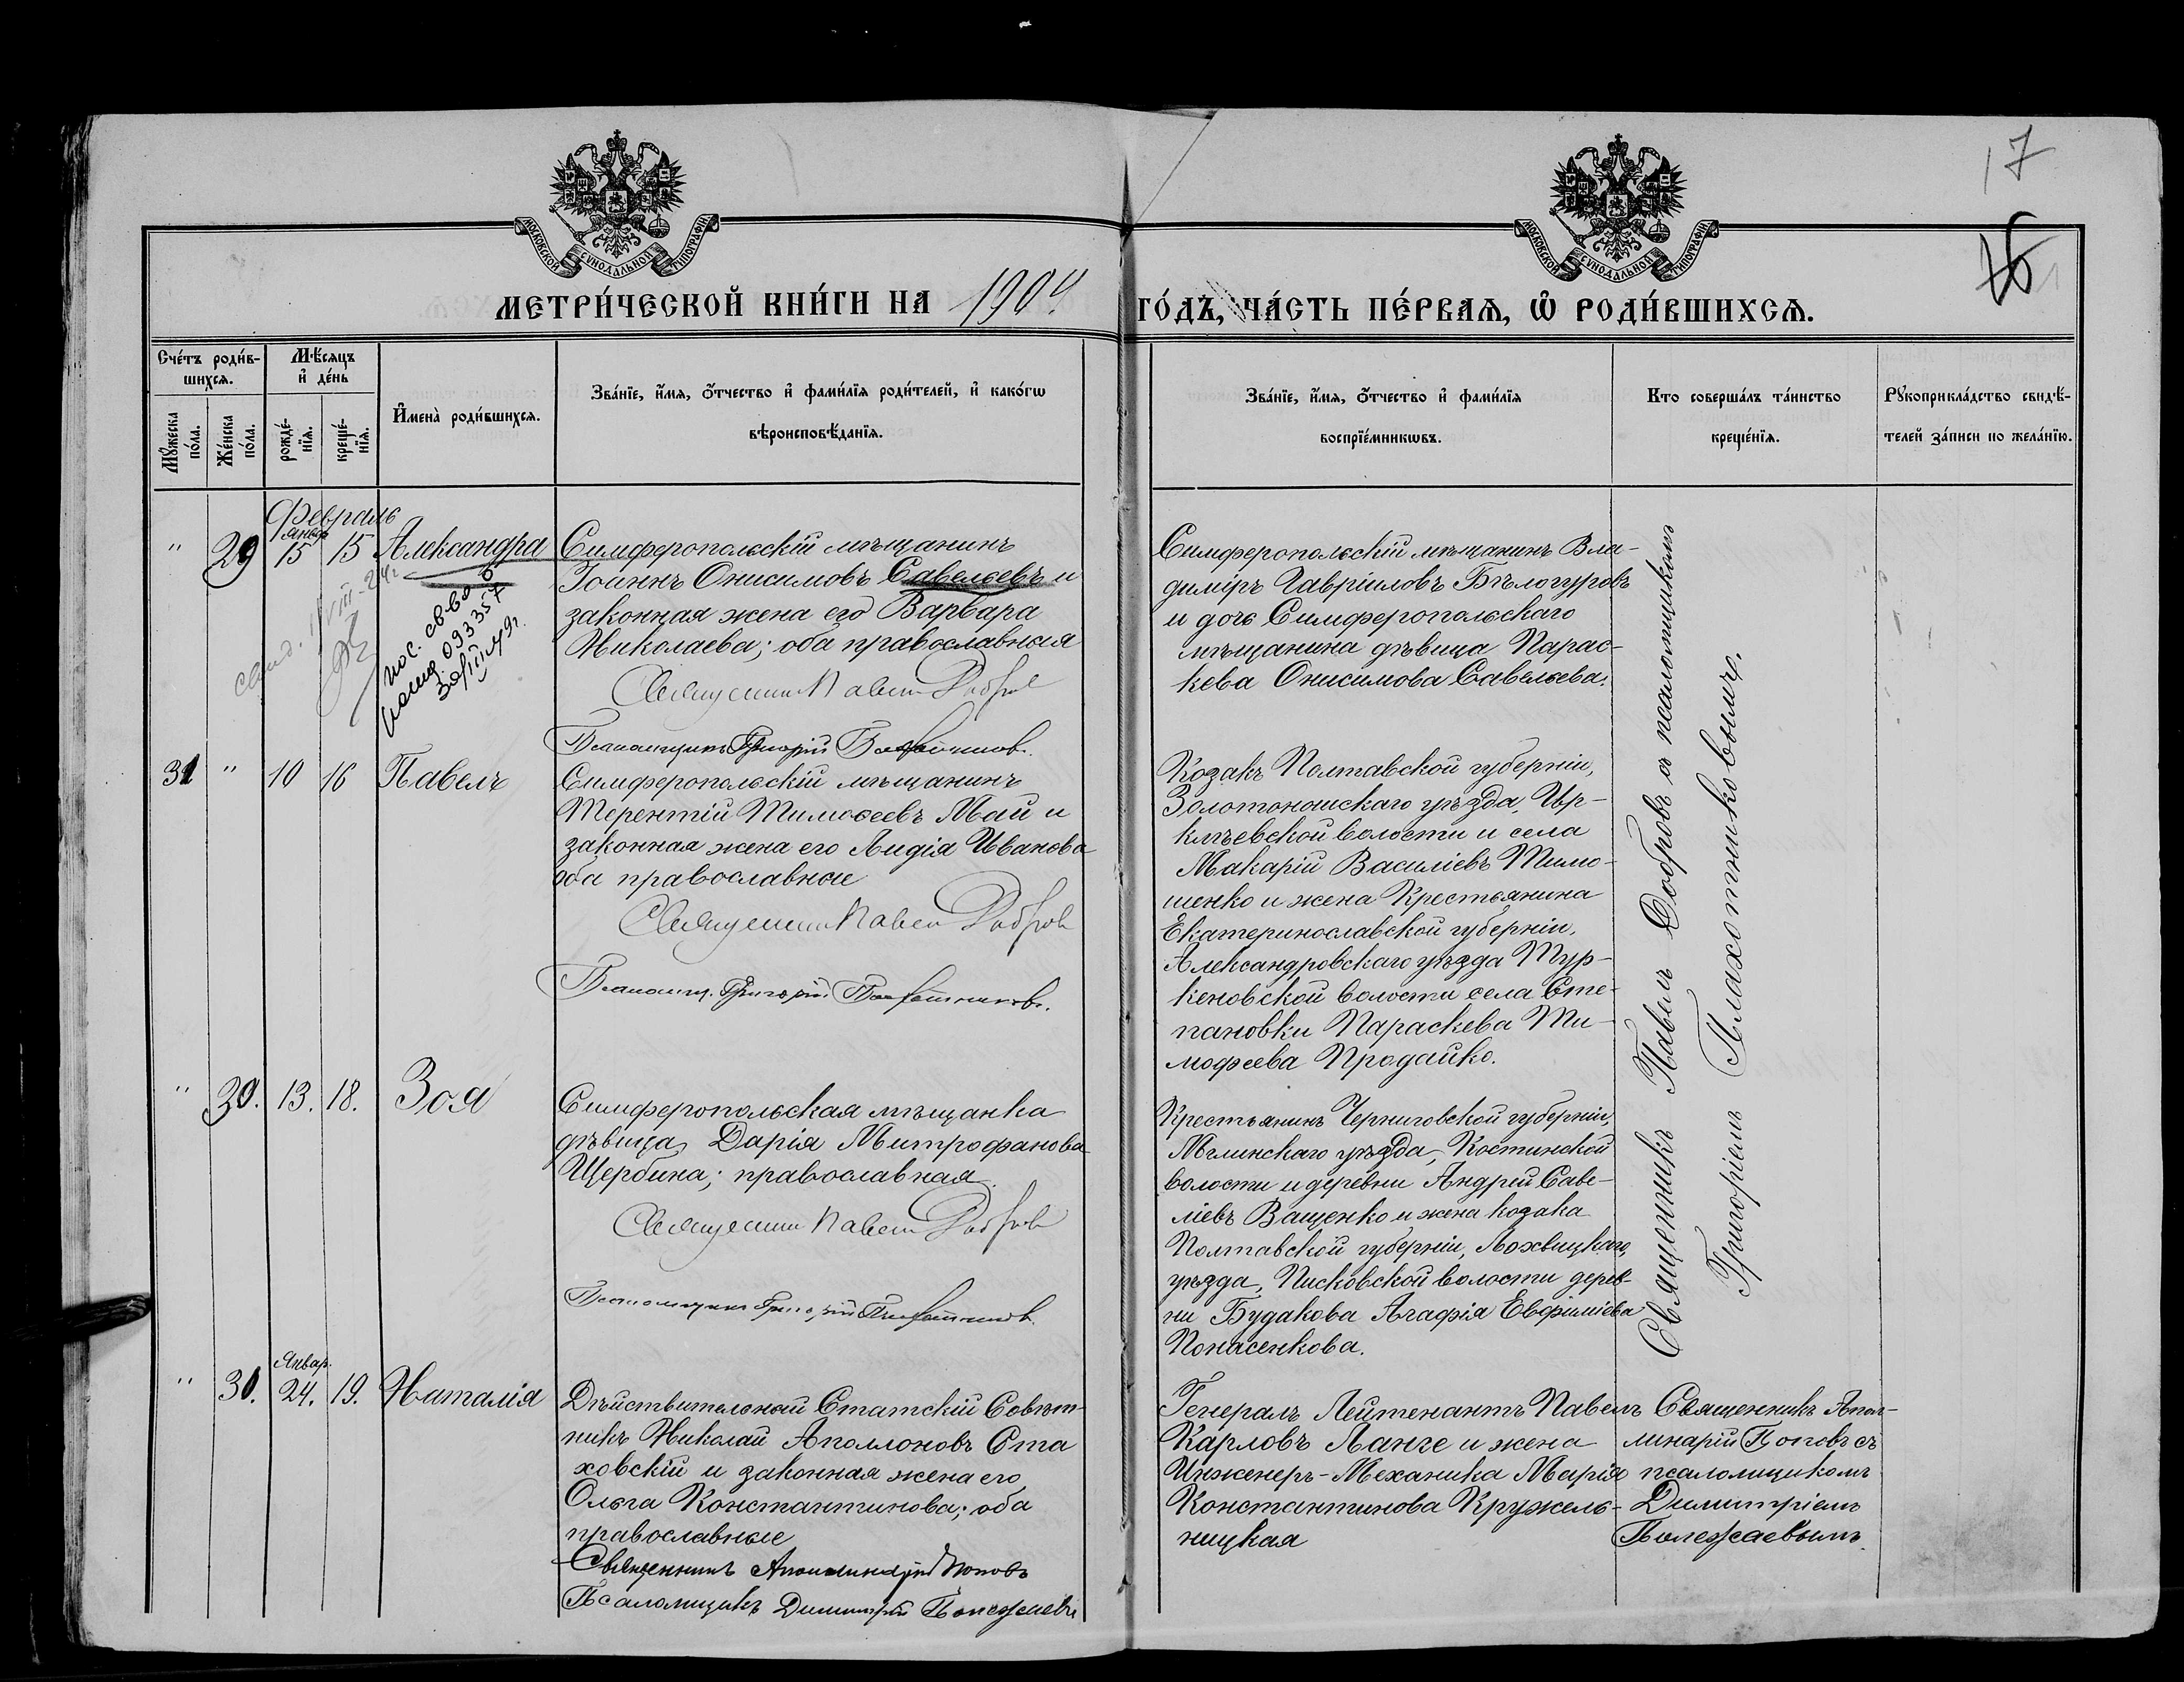 17
16
МОСКОВСКОЙ СѴНОДАЛЬНОЙ ТИПОГРАФІИ
МОСКОВСКОЙ СѴНОДАЛЬНОЙ ТИПОГРАФІИ
МЕТРИ́ЧЕСКОЙ КНИ́ГИ НА 1904
ГО́ДЪ, ЧА́СТЬ ПЕ́РВАѦ, Ѽ РОДИ́ВШИХСѦ.
Сче́тъ роди́в-
шихсѧ.
Мꙋ́жеска по́ла.
Же́нска по́ла.
Мѣ́сѧцъ
и҆ де́нь
рожде́-
нїѧ.
креще́-
нїѧ.
И҆мена̀ роди́вшихсѧ.
Зва́нїе, и҆́мѧ, ѻ҆́тчество и҆ фами́лїѧ роди́телей, и҆ како́гѡ
вѣроисповѣ́данїѧ.
Зва́нїе, и҆́мѧ, ѻ҆́тчество и҆ фами́лїѧ
воспрїе́мникѡвъ.
Кто соверша́лъ та́инство
креще́нїѧ.
Рꙋкоприкла́дство свидѣ́-
телей за́писи по жела́нїю.
Февраль
" 29 Январ 15 15 Александра
Симферопольскій мѣщанинъ
Іоаннъ Онисимовъ Савельевъ и
законная жена его Варвара
Николаева; оба православныя
Священник Павел Добров
Псаломщикъ Григорій
Симферопольскій мѣщанинъ Вла-
диміръ Гавріиловъ Бѣлогуровъ
и дочь Симферопольскаго
мѣщанина дѣвица Парас-
кева Онисимова Савельева.
093357
31 " 10 16 Павелъ
Симферопольскій мѣщанинъ
Терентій Тимоѳеевъ Май и
законная жена его Лидія Иванова
оба православные
Священник Павел Добров
Псаломщ. Григорій
Козакъ Полтавской губерніи,
Золотоношскаго уѣзда, Ир-
клѣевской волости и села
Макарій Василіевъ Тимо-
шенко и жена Крестьянина
Екатеринославской губерніи,
Александровскаго уѣзда Тур-
кеновской волости села Сте-
пановки Параскева Ти-
мофеева Продайко.
" 30. 13. 18. Зоя
Симферопольская мѣщанка
дѣвица Дарія Митрофанова
Щербина; православная.
Священник Павел Добров
Псаломщикъ Григорій
Крестьянинъ Черниговской губерніи,
Мглинскаго уѣзда, Костинской
волости и деревни Андрей Саве-
ліевъ Ващенко и жена козака
Полтавской губерніи, Лохвицкаго,
уѣзда, Писковской волости дерев-
ни Будакова Агафія Евфиміева
Понасенкова.
Священникъ Павелъ Добровъ с псаломщикомъ
Григоріемъ Плахотниковымъ.
" 31. Январ. 24. 19. Наталія
Дѣйствительный Статскій Совѣт-
никъ Николай Аполлоновъ Ста
ховскій и законная жена его
Ольга Константинова; оба
православные
Священникъ Аполлинарій Поповъ
Псаломщикъ Димитрій Полежаевъ
Генералъ Лейтенантъ Павелъ
Карловъ Ланге и жена
Инженеръ-Механика Марія
Константинова Кружель-
ницкая
Священникъ Апол-
линарій Поповъ съ
псаломщикомъ
Димитріемъ
Полежаевымъ.